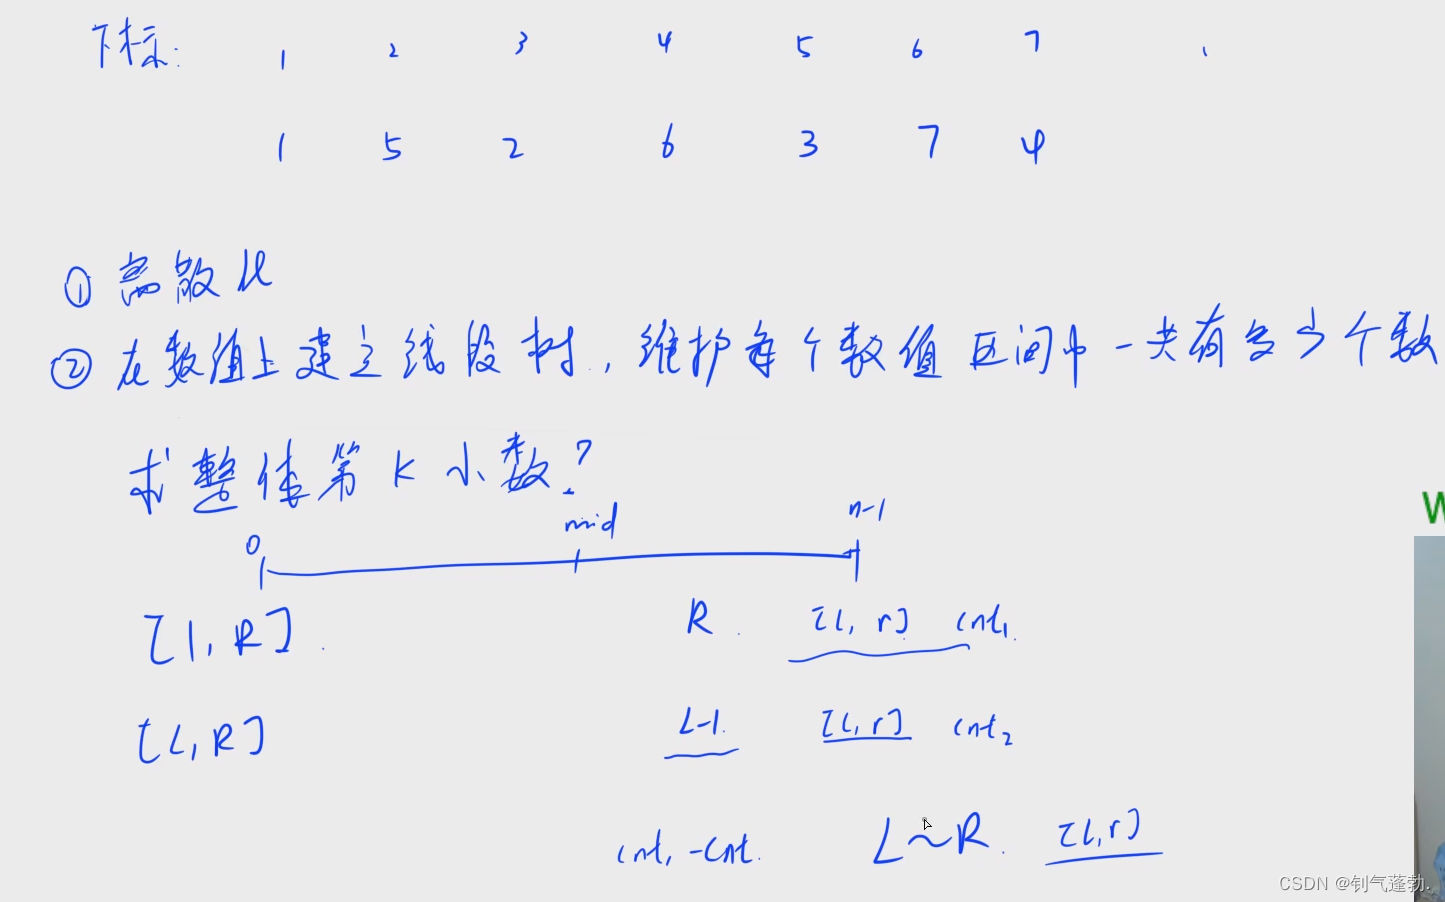 下标: 1 2 3 4 5 6 7
1 5 2 6 3 7 4
① 离散化
② 在数值上建立线段树, 维护每个数值区间中一共有多少个数
求整体第 k 小数?
0 mid n-1
W
[1, R]. R. [l, r] cnt1.
[L, R] L-1. [l, r] cnt2
cnt1 - cnt. L~R. [l, r]
CSDN @钊气蓬勃.